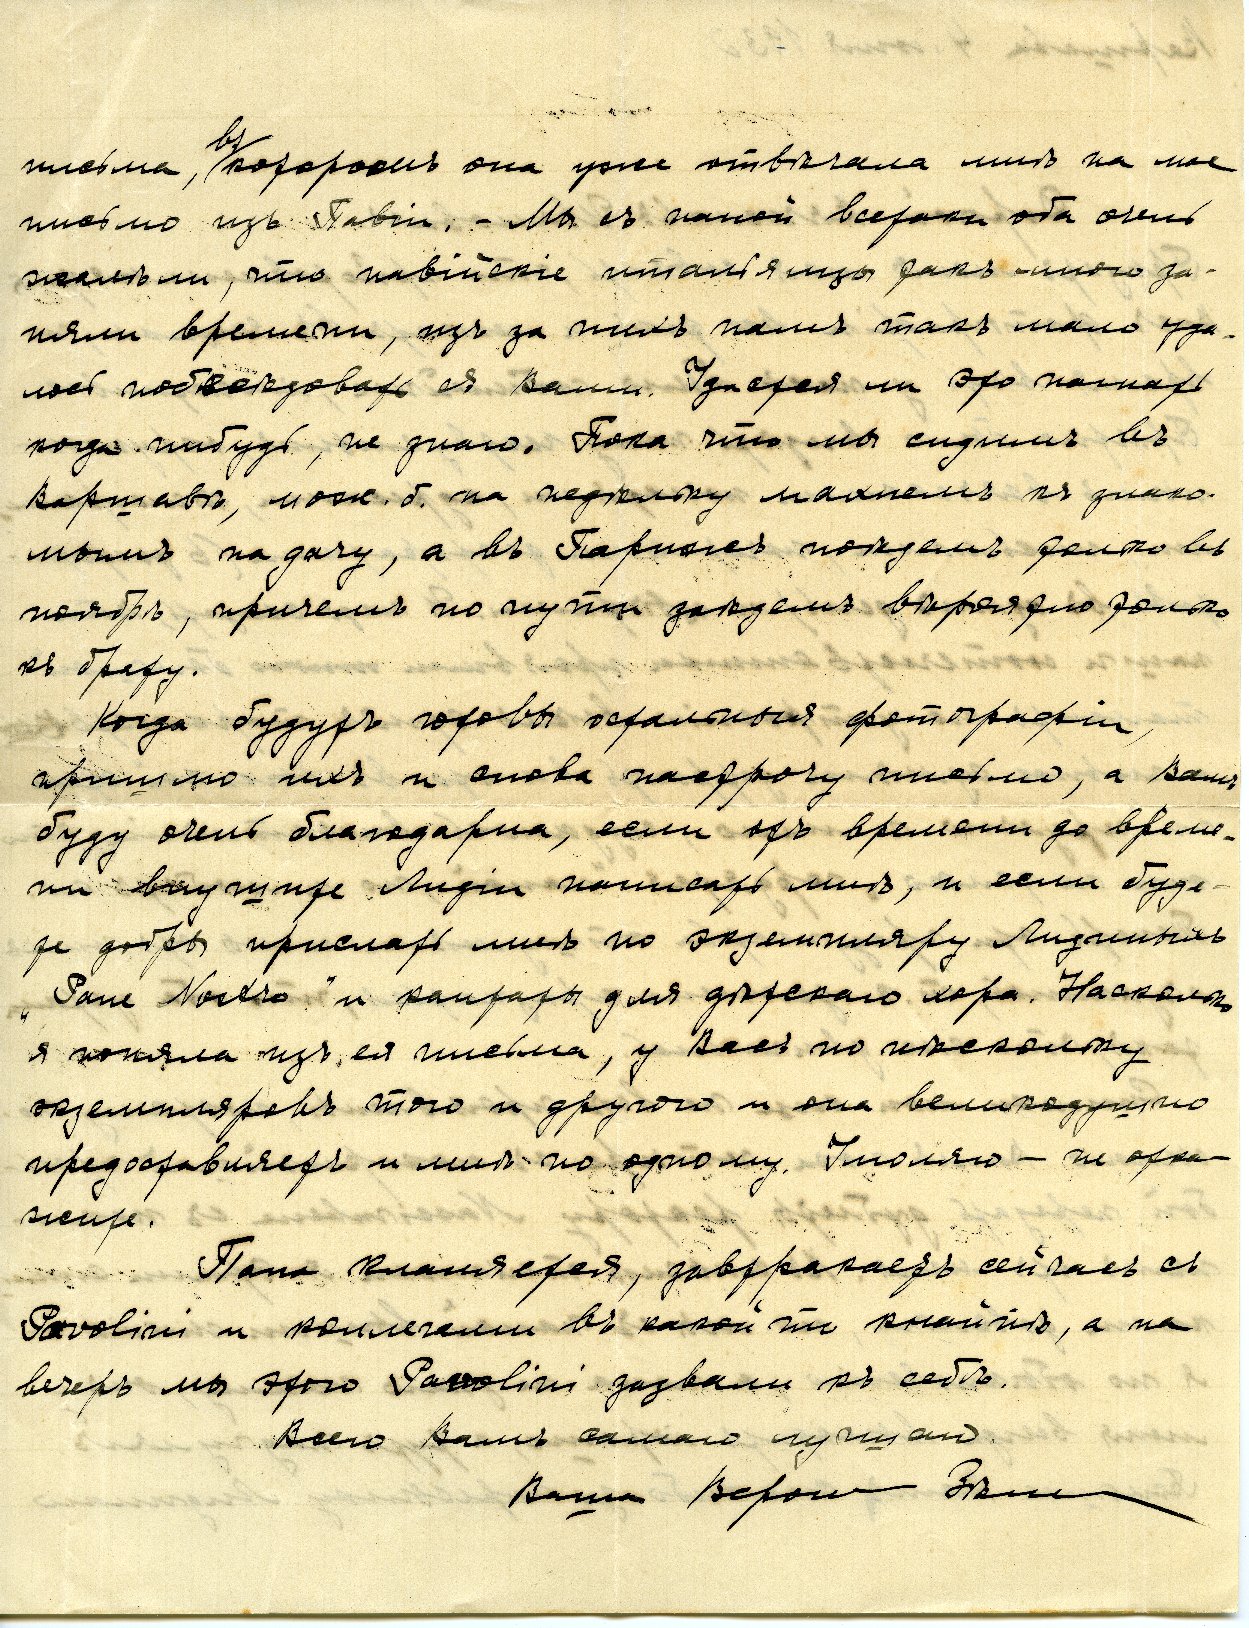 письма, въ которомъ она уже отвѣчала мнѣ на мое
письмо изъ Павіи. – Мы съ папой всетаки оба очень
жалѣли, что павійскіе итальянцы такъ много за-
няли времени, изъ за нихъ намъ такъ мало уда-
лось побесѣдовать съ Вами. Удастся ли это начать
когда нибудь, не знаю. Пока что мы сидимъ въ
Варшавѣ, мож. б. на недѣльку махнемъ къ знако-
мымъ на дачу, а въ Парижъ поѣдемъ только въ
ноябрѣ, причемъ по пути заѣдемъ вѣроятно только
къ брату.
Когда будутъ готовы остальныя фотографіи,
пришлю ихъ и снова настрочу письмо, а Вамъ
буду очень благодарна, если отъ времени до време-
ни внушите Лидіи написать мнѣ, и если буде-
те добры прислать мнѣ по экземпляру Лидиныхъ
„Pane Nostro" и кантаты для дѣтскаго хора. Насколько
я поняла изъ ея письма, у Васъ по нѣскольку
экземпляровъ того и другого и она великодушно
предоставляетъ и мнѣ по одному. Умоляю – не отка-
жите.
Папа кланяется, завтракаетъ сейчасъ съ
Pavolini и коллегами въ какой то кнайпѣ, а на
вечеръ мы этого Pavolini зазвали къ себѣ.
Всего Вамъ самаго лучшаго.
Ваша Верон Зѣли